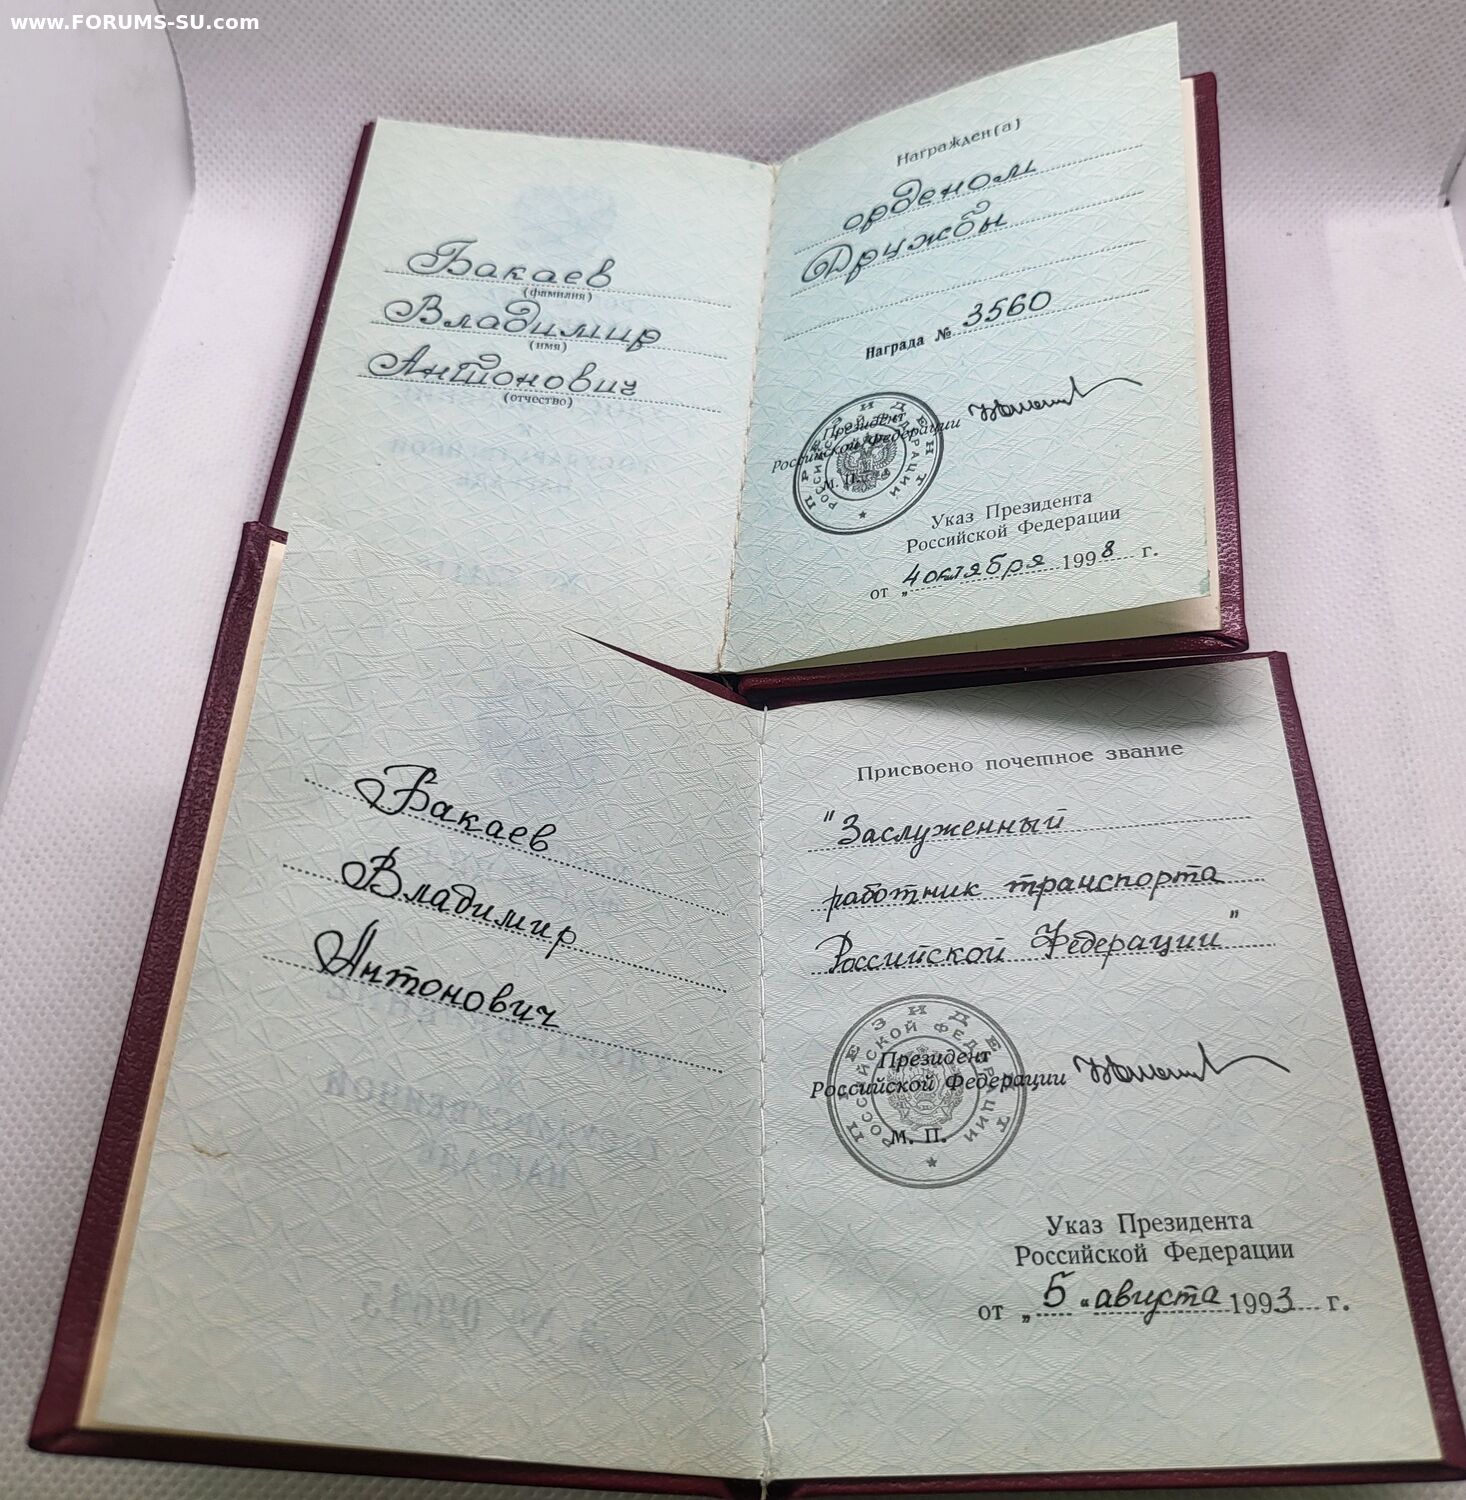 www.FORUMS-SU.com
Бакаев
(фамилия)
Владимир
(имя)
Антонович
(отчество)
Награжден(а)
орденом
Дружбы
Награда № 3560
ПРЕЗИДЕНТ
РОССИЙСКОЙ ФЕДЕРАЦИИ
Президент
Российской Федерации
М. П.
Указ Президента
Российской Федерации
от „ 4 октября 1998 г.
Бакаев
Владимир
Антонович
Присвоено почетное звание
"Заслуженный
работник транспорта
Российской Федерации"
ПРЕЗИДЕНТ
РОССИЙСКОЙ ФЕДЕРАЦИИ
Президент
Российской Федерации
М. П.
Указ Президента
Российской Федерации
от „ 5 “ августа 1993 г.